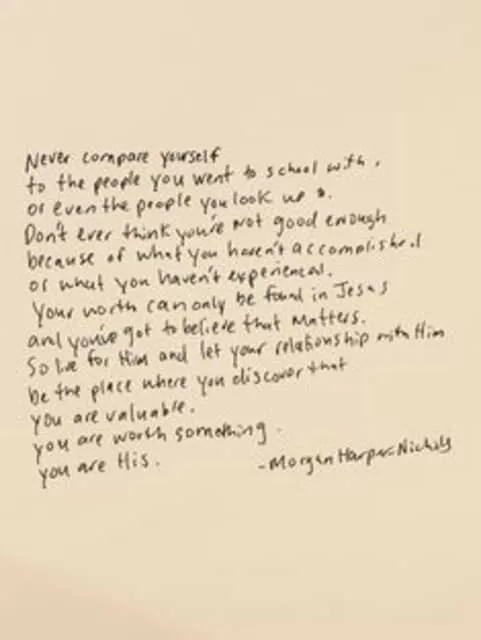 Never compare yourself
to the people you went to school with,
or even the people you look up to.
Don't ever think you're not good enough
because of what you haven't accomplished
or what you haven't experienced.
Your worth can only be found in Jesus
and you've got to believe that matters.
So live for Him and let your relationship with Him
be the place where you discover that
you are valuable.
you are worth something.
you are His.
-Morgan Harper Nichols